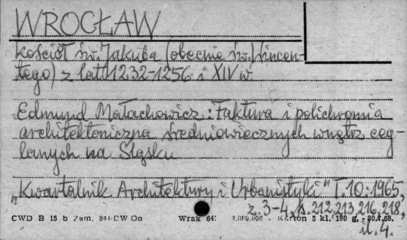 WROCŁAW
Kościół św. Jakuba (obecnie św. Wincen-
tego) z lat 1232-1256 i XIV w
Edmund Małachowicz: Faktura i polichromia
architektoniczna średniowiecznych wnętrz ceg-
lanych na Śląsku
„Kwartalnik Architektury i Urbanistyki" T. 10:1965,
z. 3-4, s. 212, 213, 216, 218,
il. 4.
CWD B 15 b Zam. CW On Wrak 64 Karton 5 kl. 180 g.